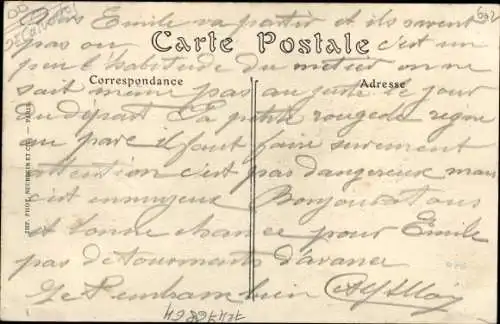 Emile va partir et ils savent
pas ou c'est un
Carte Postale
peu l'habitude du metier on ne
Correspondance
Adresse
sait meme pas au juste le jour
du départ La petite rougeole regne
au parc il faut faire surement
attention c'est pas dangereux mais
c'est ennuyeux Bonjour a tous
et bonne chance pour Emile
pas de tourments d'avance
bien
IMP. PHOT. NEURDEIN ET Cie. — PARIS